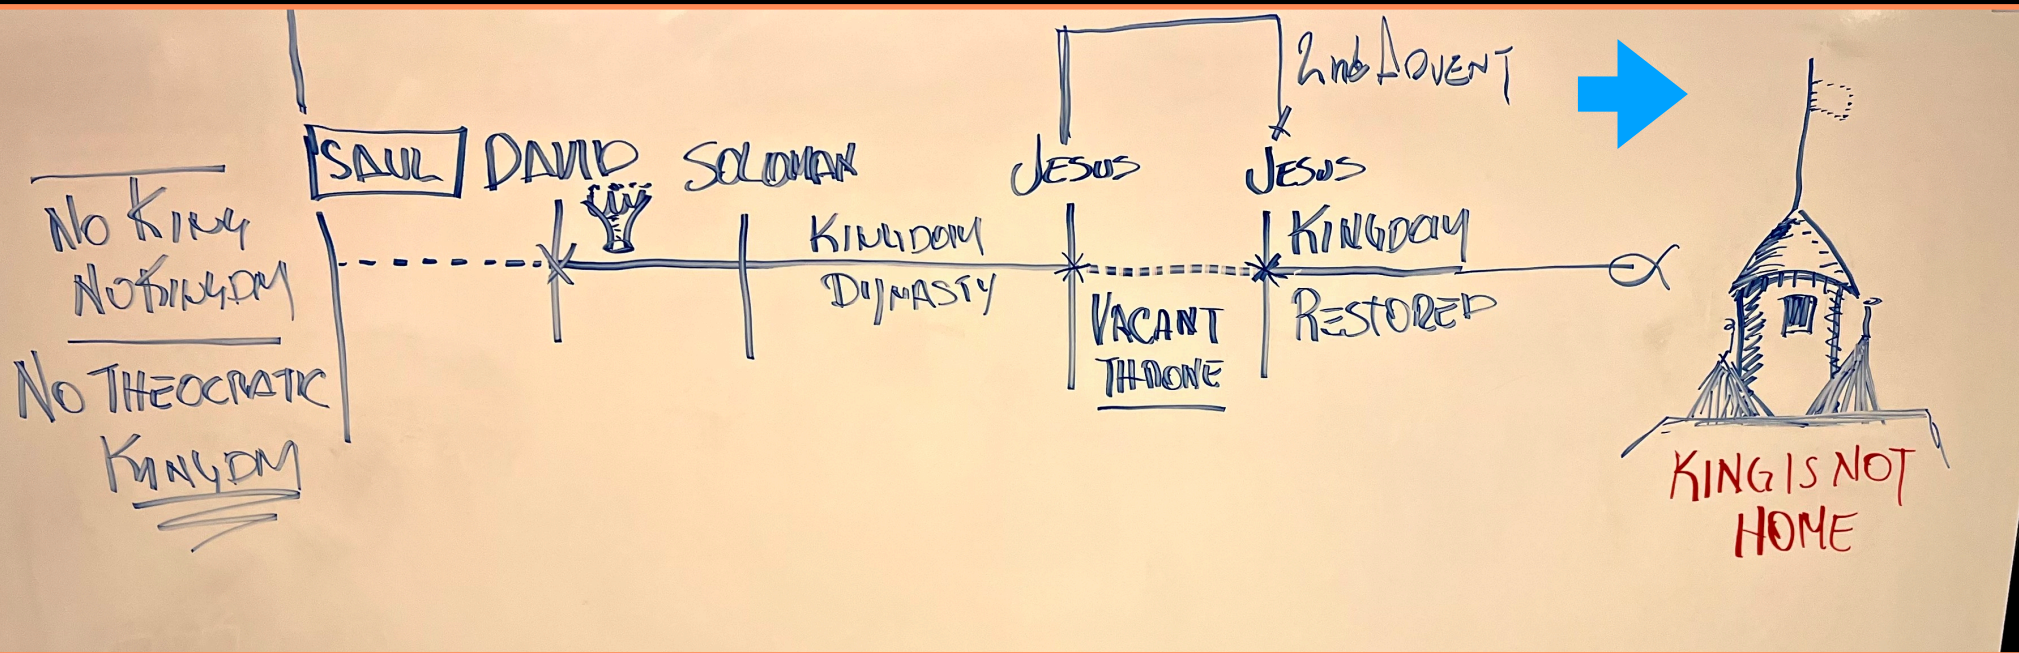 NO KING
NO KINGDM
NO THEOCRATIC
KINGDM
SAUL
DAVID
SOLOMAN
KINGDOM
DYNASTY
JESUS
VACANT
THRONE
2nd ADVENT
JESUS
KINGDOM
RESTORED
KING IS NOT
HOME